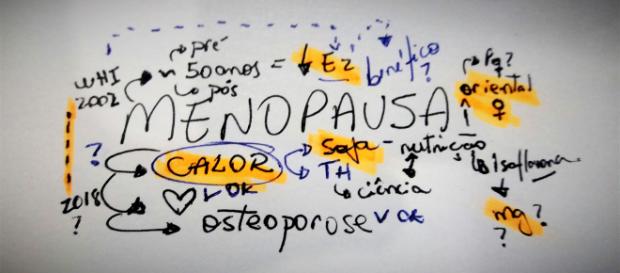 pré
WHI ~ 50 anos = ↓ E2 benéfico ?
2002 pós
Pq?
oriental
♀
MENOPAUSA
? CALOR soja - nutrição
TH Isoflavona
ciência
2018 ♡ ✓ OK
? osteoporose ✓ OK
mg?
?